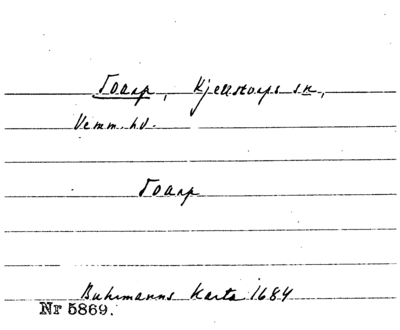 Toarp, Kjellstorps sn,
Vemm. hd.
Toarp
Buhrmanns Karta 1684
Nr 5869.